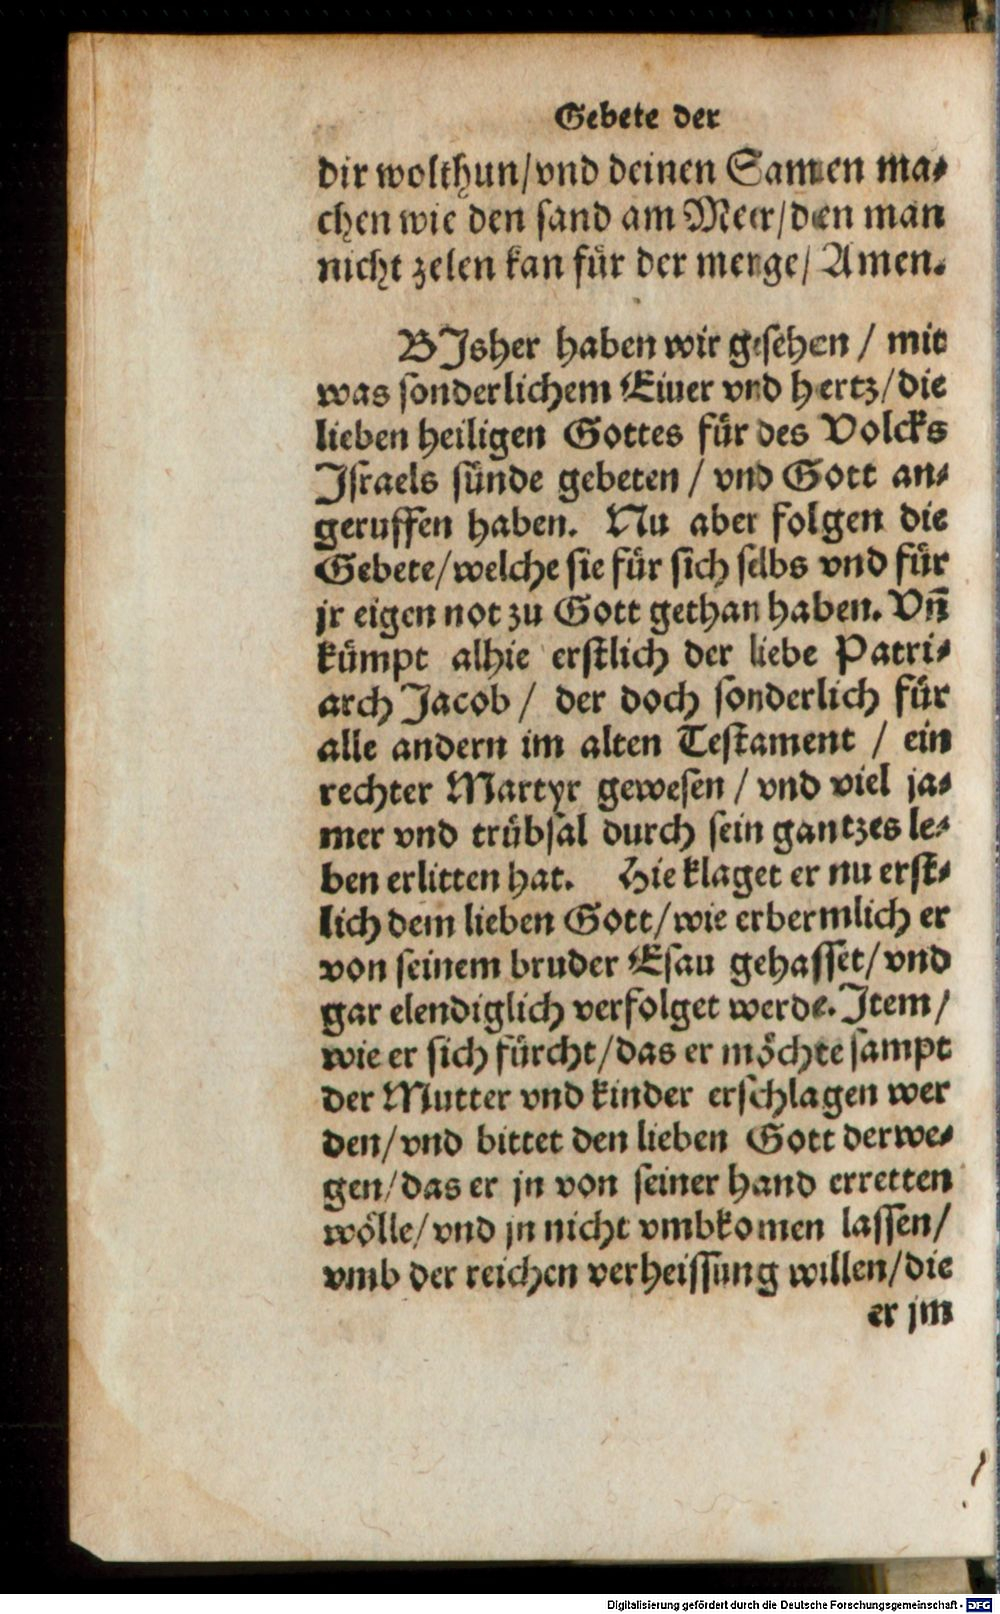 Gebete der
dir wolthun/vnd deinen Samen ma⸗
chen wie den sand am Meer/den man
nicht zelen kan für der menge/ Amen.
BJsher haben wir gesehen / mit
was sonderlichem Eiuer vnd hertz/die
lieben heiligen Gottes für des Volcks
Jsraels sünde gebeten / vnd Gott an⸗
geruffen haben. Nu aber folgen die
Gebete/welche sie für sich selbs vnd für
jr eigen not zu Gott gethan haben. Vn̄
kümpt alhie erstlich der liebe Patri⸗
arch Jacob / der doch sonderlich für
alle andern im alten Testament / ein
rechter Martyr gewesen / vnd viel ja⸗
mer vnd trübsal durch sein gantzes le⸗
ben erlitten hat. Hie klaget er nu erst⸗
lich dem lieben Gott/wie erbermlich er
von seinem bruder Esau gehasset/vnd
gar elendiglich verfolget werde. Jtem/
wie er sich fürcht/das er möchte sampt
der Mutter vnd kinder erschlagen wer
den/vnd bittet den lieben Gott derwe⸗
gen/das er jn von seiner hand erretten
wölle/vnd jn nicht vmbkomen lassen/
vmb der reichen verheissung willen/die
er jm
Digitalisierung gefördert durch die Deutsche Forschungsgemeinschaft - DFG